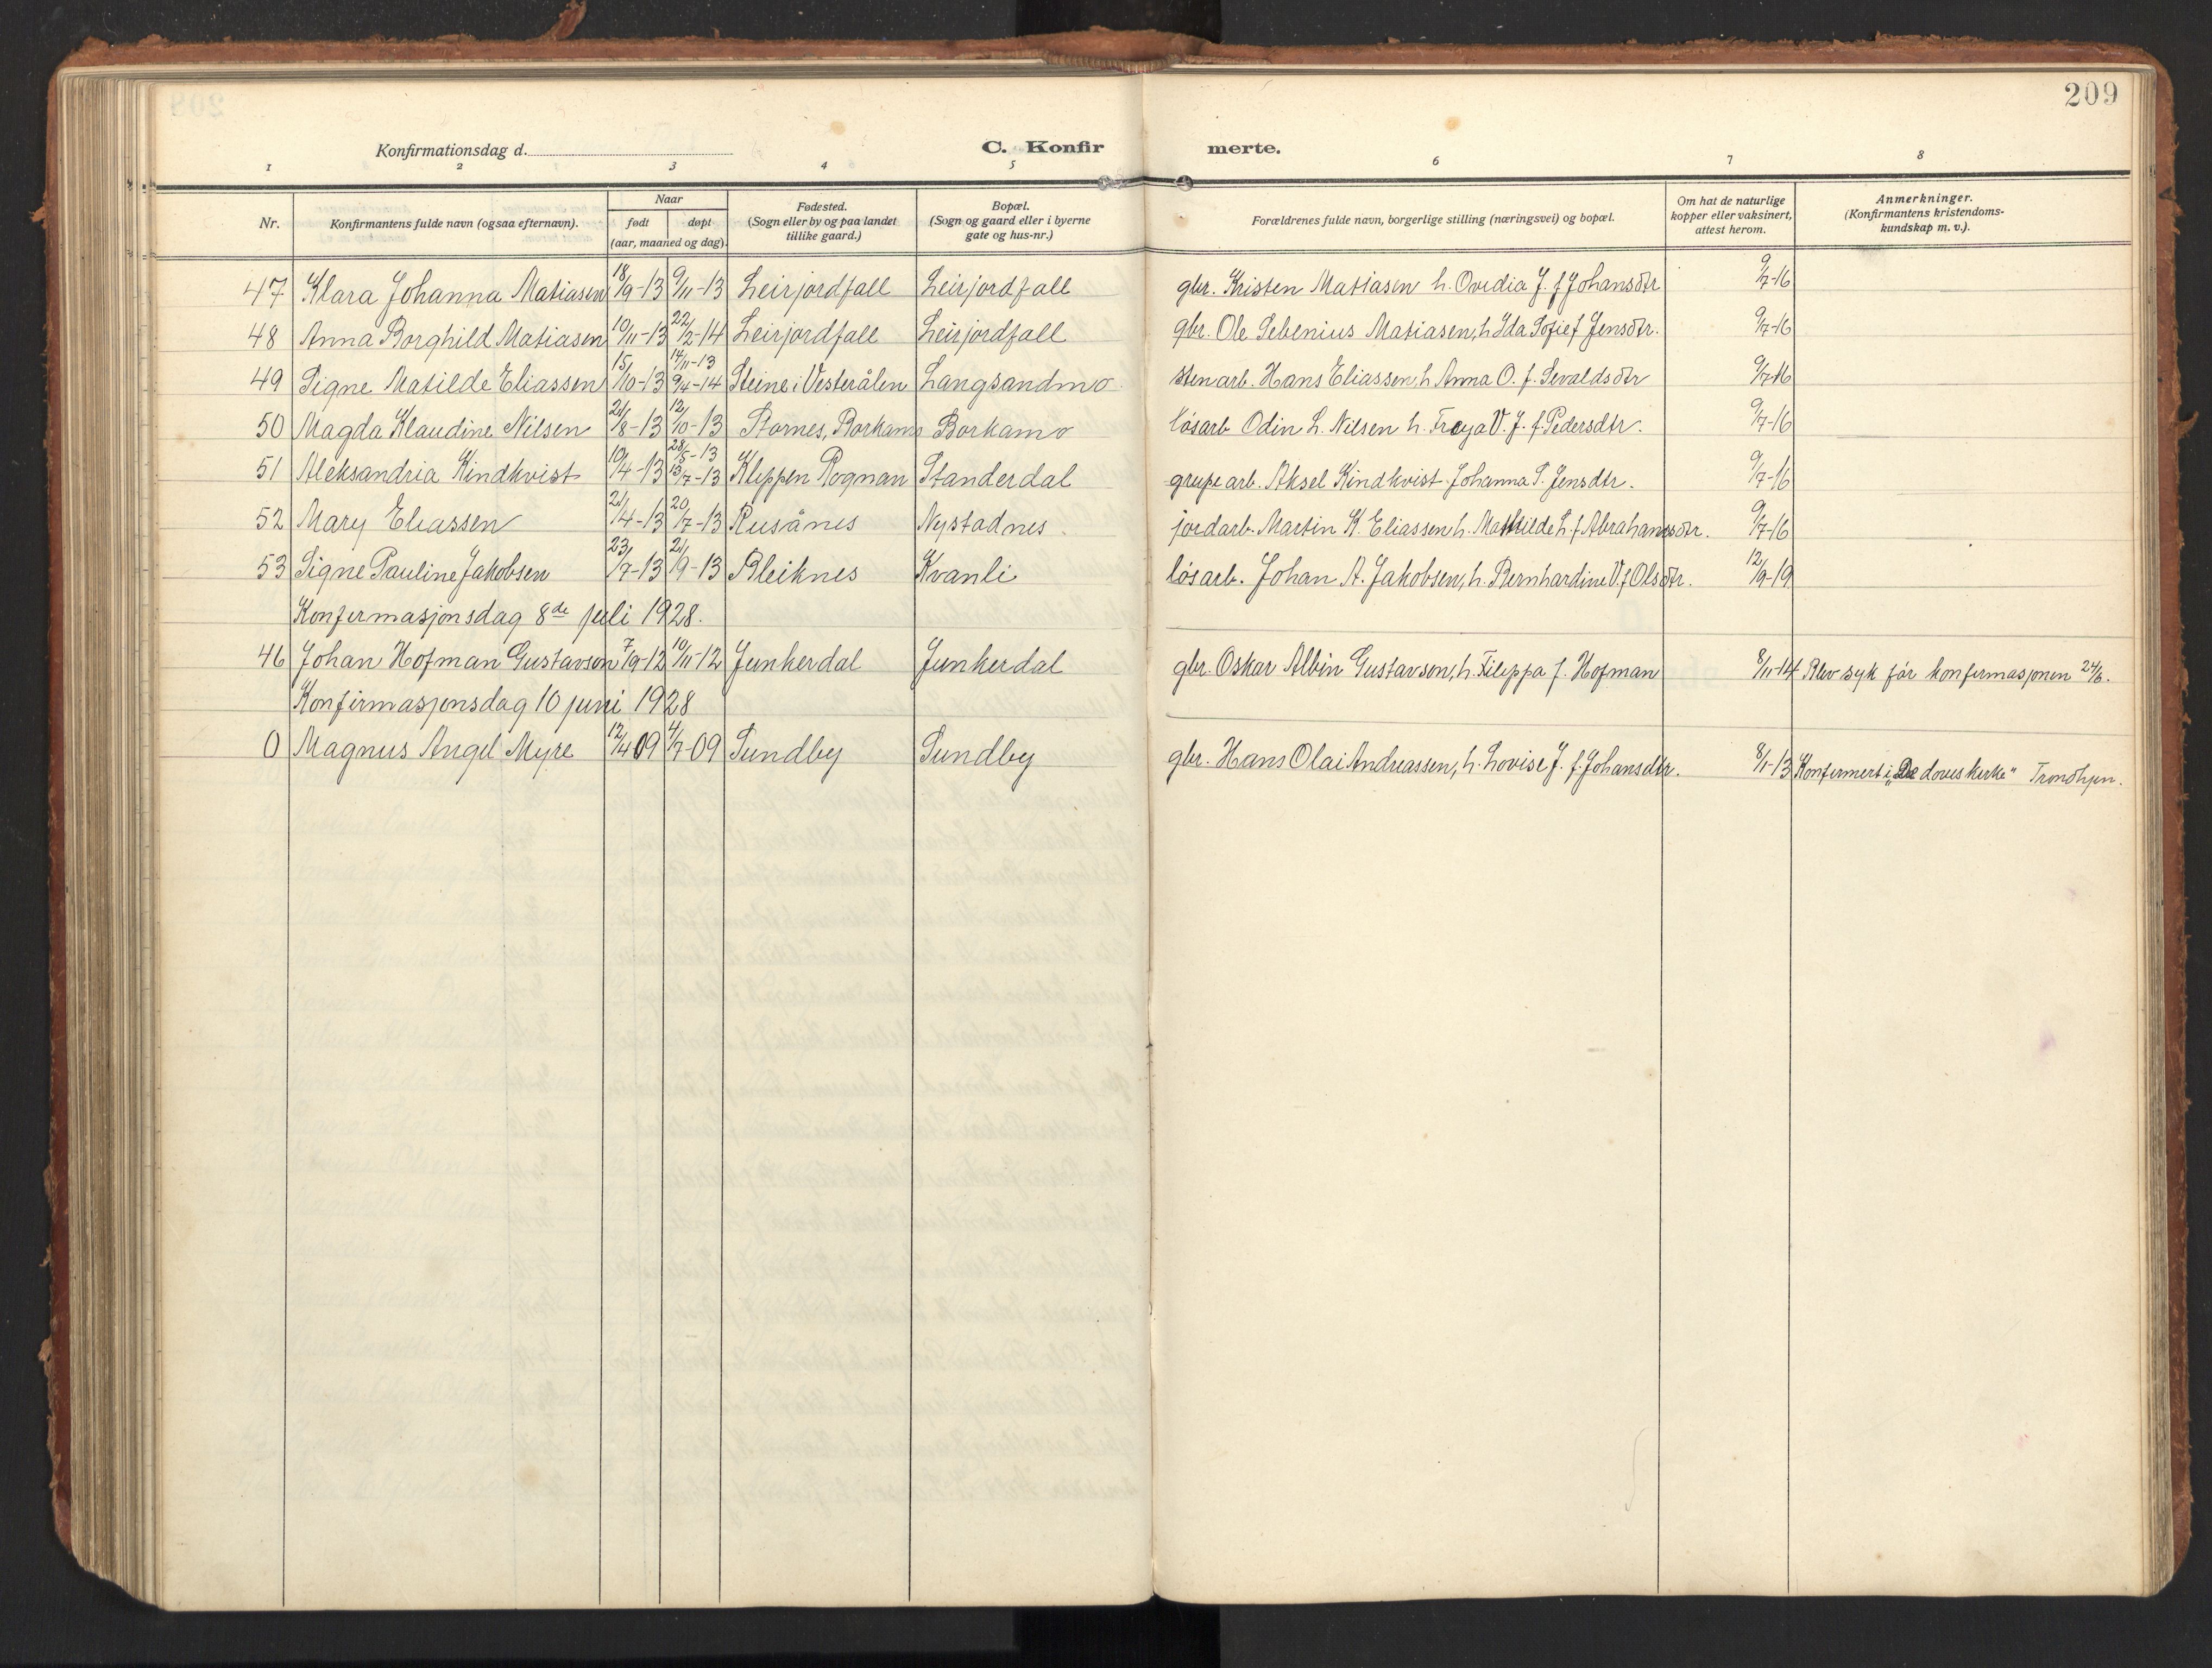 209
Konfirmationsdag d.
C. Konfir merte.
1 2 3 4 5 6 7 8
Nr. Konfirmantens fulde navn (ogsaa efternavn). Naar født døpt (aar, maaned og dag). Fødested. (Sogn eller by og paa landet tillike gaard.) Bopæl. (Sogn og gaard eller i byerne gate og hus-nr.) Forældrenes fulde navn, borgerlige stilling (næringsvei) og bopæl. Om hat de naturlige kopper eller vaksinert, attest herom. Anmerkninger. (Konfirmantens kristendoms-kundskap m. v.).
47 Klara Johanna Matiasen 18/9-13 9/11-13 Leirjordfall Leirjordfall gbr. Kristen Matiasen h. Ovidia J. f Johansdtr 9/7-16
48 Anna Borghild Matiasen 10/11-13 22/2-14 Leirjordfall Leirjordfall gbr. Ole Sebenius Matiasen, h. Ida Sofie f Jensdtr. 9/7-16
49 Signe Matilde Eliassen 15/10-13 14/11-13 9/4-14 Steine i Vesterålen Langsandmo stenarb. Hans Eliassen, h Anna O. f. Sevaldsdtr 9/7-16
50 Magda Klaudine Nilsen 21/8-13 12/10-13 Stornes, Borkamo Borkamo løsarb Odin L. Nilsen h. Frøya V. J. f. Pedersdtr. 9/7-16
51 Aleksandria Kindkvist 10/4-13 28/5-13 13/7-13 Kleppen Rognan Standerdal grupearb. Aksel Kindkvist Johanna S. Jensdtr. 9/7-16
52 Mary Eliassen 21/4-13 20/7-13 Rusånes Nystadnes. jordarb. Martin K. Eliassen h. Mathilde L. f Abrahamsdtr. 9/7-16
53 Signe Pauline Jakobsen 23/7-13 21/9-13 Bleiknes Kvanli løsarb. Johan A. Jakobsen, h. Bernhardine V. f Olsdtr. 12/9-19
Konfermasjonsdag 8de juli 1928.
46 Johan Hofman Gustavson 7/9-12 10/11-12 Junkerdal Junkerdal gbr. Oskar Albin Gustavson, h. Filippa f. Hofman 8/11-14 Blev syk før konfermasjonen 24/6.
Konfirmasjonsdag 10 juni 1928
0 Magnus Angel Myre 12/4 09 4/7-09 Sundby Sundby gbr. Hans Olai Andreassen, h. Lovise J. f. Johansdtr. 8/1-13 Konfermert i „De døves kirke" Trondhjen.